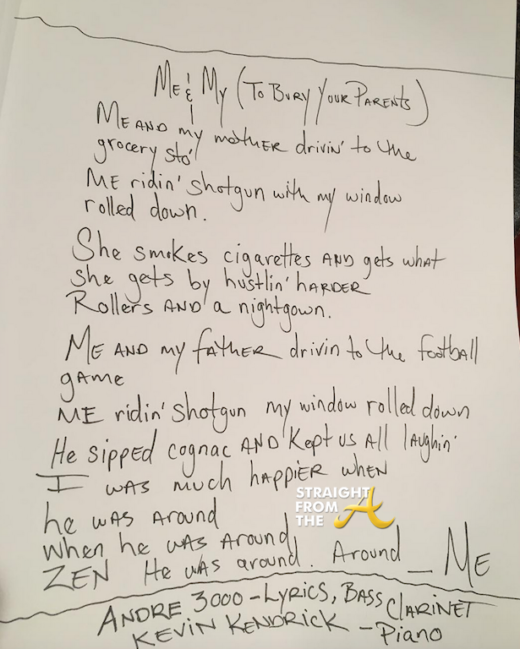 ME & MY (TO BURY YOUR PARENTS)
ME AND my mother drivin' to the
grocery sto'
ME ridin' shotgun with my window
rolled down.
She smokes cigarettes AND gets what
she gets by hustlin' HARDER
Rollers AND a nightgown.
ME AND my father drivin to the football
gAme
ME ridin' shotgun my window rolled down
He sipped cognac AND kept us All lAughin'
I WAS much hAppiER wHEN
he WAS Around
When he WAS Around
ZEN He WAs around. Around _ ME
STRAIGHT
FROM
THE A
ANDRE 3000 - Lyrics, BASS CLARINET
KEVIN KENDRICK - Piano